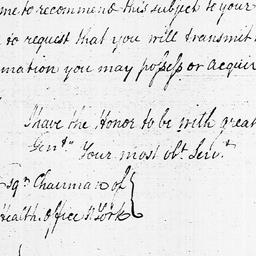 me to recommend this subject to your
to request that you will transmit
mation you may possess or acquir
I have the Honor to be with great
Gentn
Your most obt. Servt
Esqr Chairman of
Health Office N York